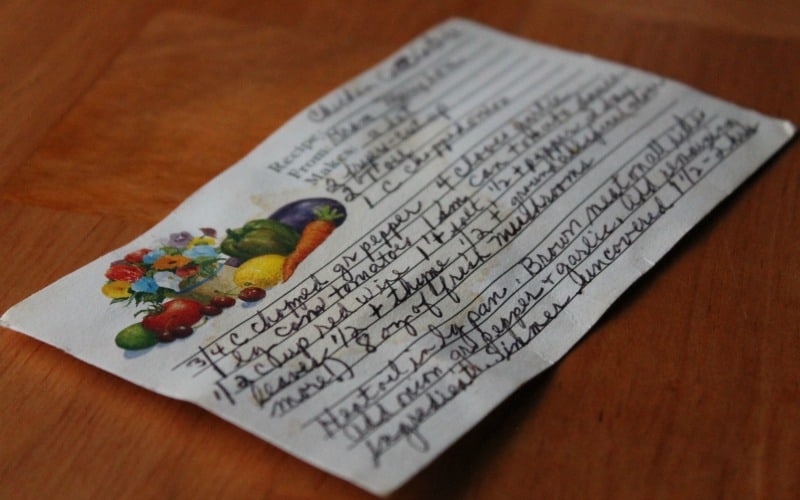 Chicken
Recipe:
From: Bean
Makes: a lot
2 fryers cut up
2 T oil
1 C chopped onion
3/4 C chopped gr pepper 4 cloves garlic
1 lg can tomatoes 1 sm can tomato
1/2 C cup red wine 1 t salt 1/2 t pepper 2 bay
leaves 1/2 t thyme 1/2 t ground
more) 8 oz of fresh mushrooms
Heat oil in lg pan. Brown meat
Add onion gr pepper + garlic. Add remaining
ingredients. Simmer uncovered 1 1/2 - 2